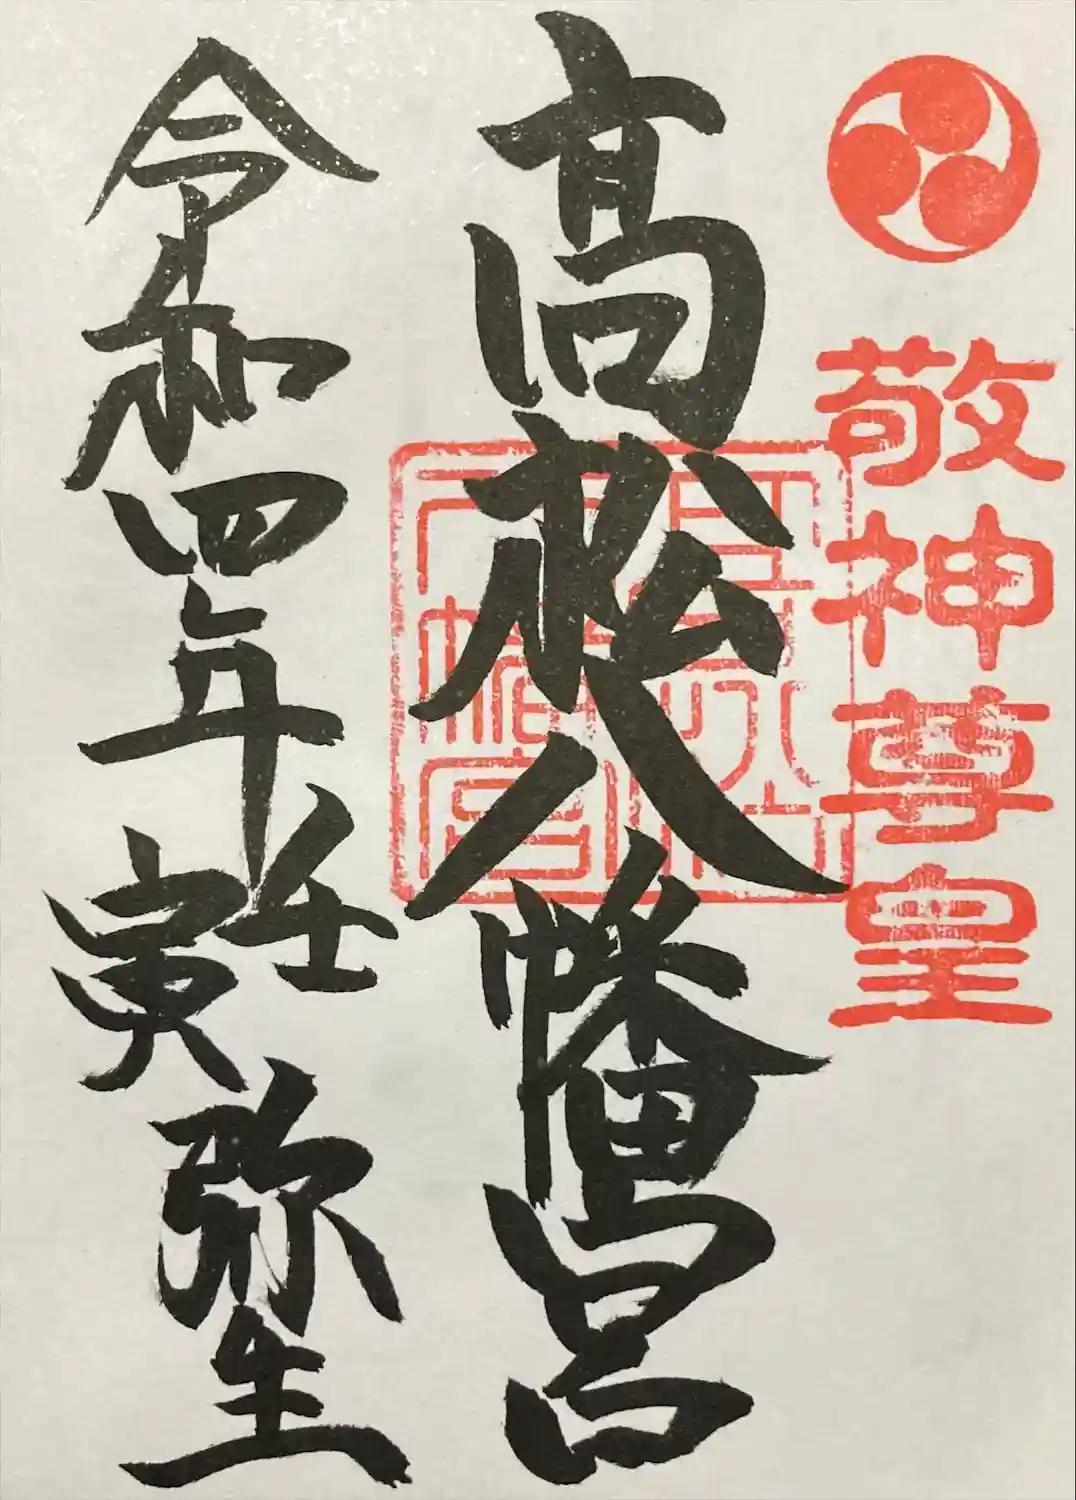 敬神尊皇
高松八幡宮
令和四年壬寅弥生